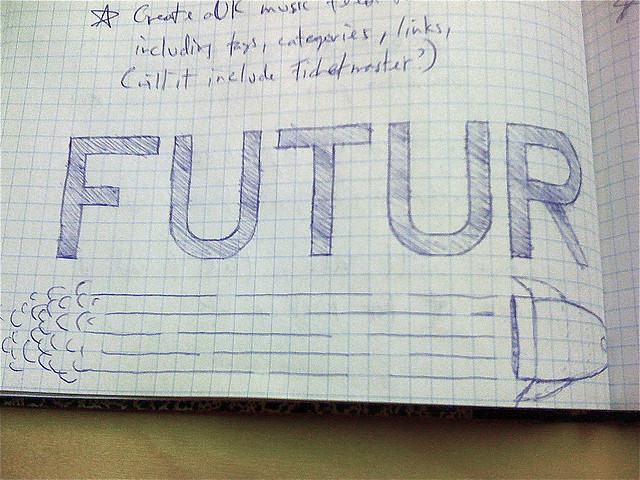 Create a UK music
including tags, categories, links,
(will it include Ticketmaster?)
FUTUR